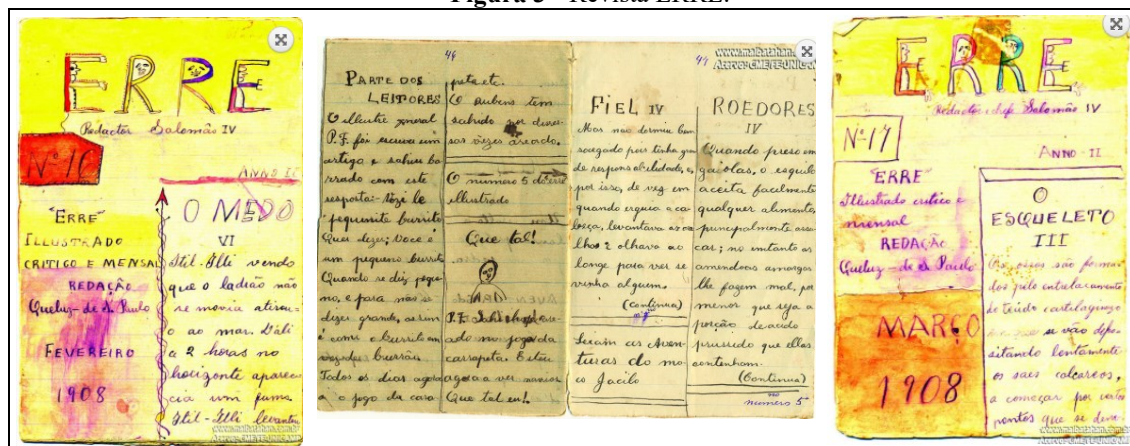 Figura 3 - Revista ERRE.
ERRE
Redactor Salomão IV
Nº 16
ANNO II
"ERRE"
ILLUSTRADO
CRITICO E MENSAL
REDAÇÃO
Queluz-de S. Paulo
FEVEREIRO
1908
O MEDO
VI
Stil-Illi vendo
que o ladrão não
se movia atirou-
o ao mar. D'ali
a 2 horas no
horizonte apare-
cia um fumo
Stil-Illi levantou
www.malbatahan.com.br
Acervo-CMEFE-UNICAMP
44
PARTE DOS
LEITORES
O illustre general
P.F. foi escrever um
artigo e sahiu bo
rrado com este
resposta-
pequenito burrito
Quer dizer; Voce é
um pequeno burrito
Quando se diz peque
no, e para nós é
dizer grande, assim
é como o burrito em
vez de burrão
Todos os dias agora
a o jogo da cara-
peta etc.
O Rubens tem
sahido por diver-
sas vezes
O numero 5 do erre
illustrado
Que tal!
P.F.
ado no jogo da
carrapeta. Estou
agora a ver navios
Que tal eu!
44
www.malbatahan.com.br
Acervo-CMEFE-UNICAMP
FIEL IV
Mas não dormiu bem
socegado pois tinha gran
de responsabilidade, e
por isso, de vez em
quando erguia a ca-
beça, levantava os o
lhos e olhava ao
longe para ver se
vinha alguem.
(continua)
Leiam as Aven-
turas do mo
co Jacilo
ROEDORES
IV
Quando preso em
gaiolas, o esquilo
aceita facilmente
qualquer alimento,
principalmente assu-
car; no entanto as
amendoas amargas
lhe fazem mal, por
menor que seja a
porção de acido
prussico que ellas
contenham.
(Continua)
numero 5
ERRE
Redactor chefe Salomão IV
Nº 17
ANNO - II
"ERRE"
Illustrado critico e
mensal
REDAÇÃO
Queluz - de S. Paulo
MARÇO
1908
O
ESQUELETO
III
Os ossos são forma-
dos pelo entrelaçamento
do tecido cartilaginoso
se vão depo-
sitando lentamente
os saes calcareos,
a começar por varios
pontos que se
www.malbatahan.com.br
Acervo-CMEFE-UNICAMP